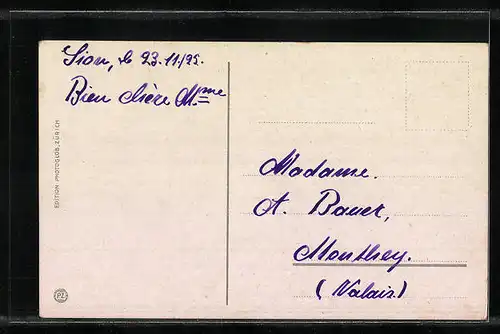 Sion, le 23.11/92.
Bien chère Mme
Madame.
A. Bauer,
Monthey.
(Valais)
EDITION PHOTOGLOB, ZÜRICH
PZ